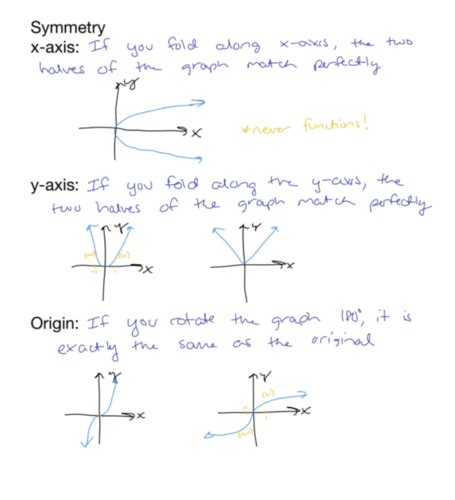 Symmetry
x-axis: If you fold along x-axis, the two
halves of the graph match perfectly
y
x
*never functions!
y-axis: If you fold along the y-axis, the
two halves of the graph match perfectly
y y
x x
Origin: If you rotate the graph 180°, it is
exactly the same as the original
y y
x x